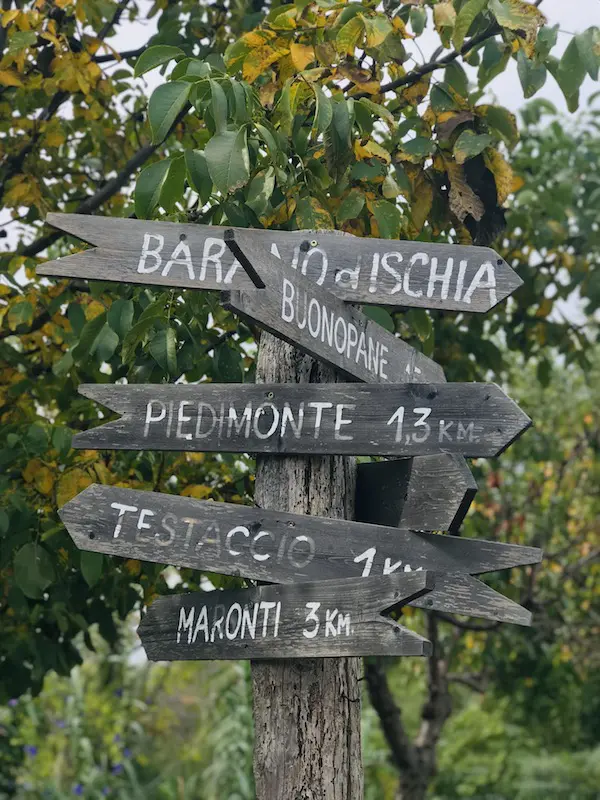 BARANO d'ISCHIA
BUONOPANE
PIEDIMONTE 1,3 KM.
TESTACCIO 1 KM
MARONTI 3 KM.